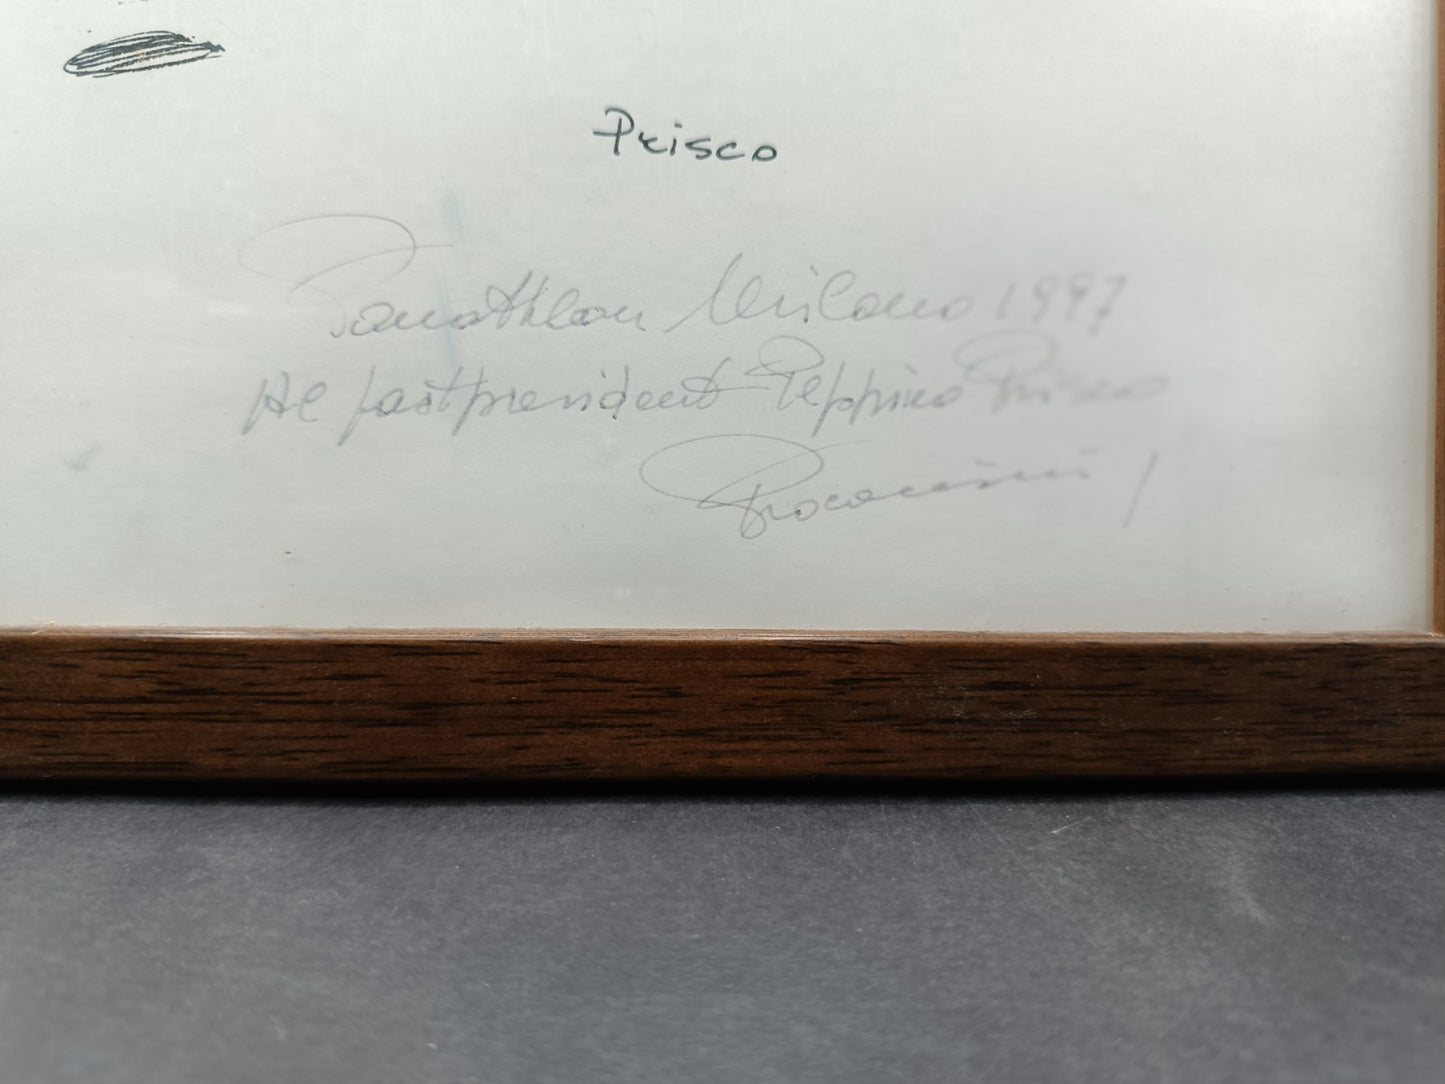 Prisco
Panathlon Milano 1997
Al past president Peppino Prisco